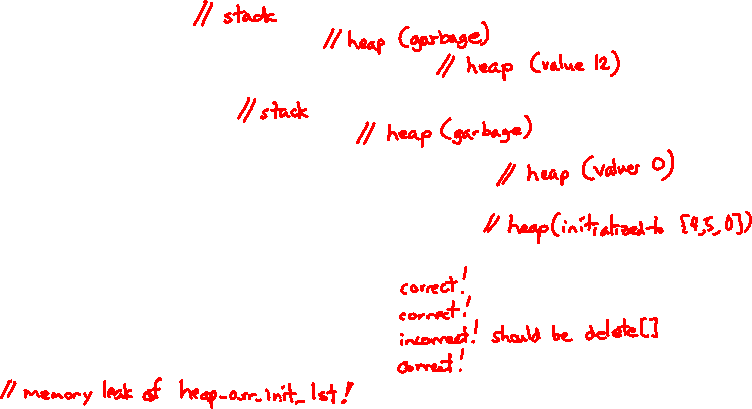 // stack
// heap (garbage)
// heap (value 12)
// stack
// heap (garbage)
// heap (values 0)
// heap (initialized to {4,5,0})
correct!
correct!
incorrect! should be delete[]
correct!
// memory leak of heap_arr_init_lst!